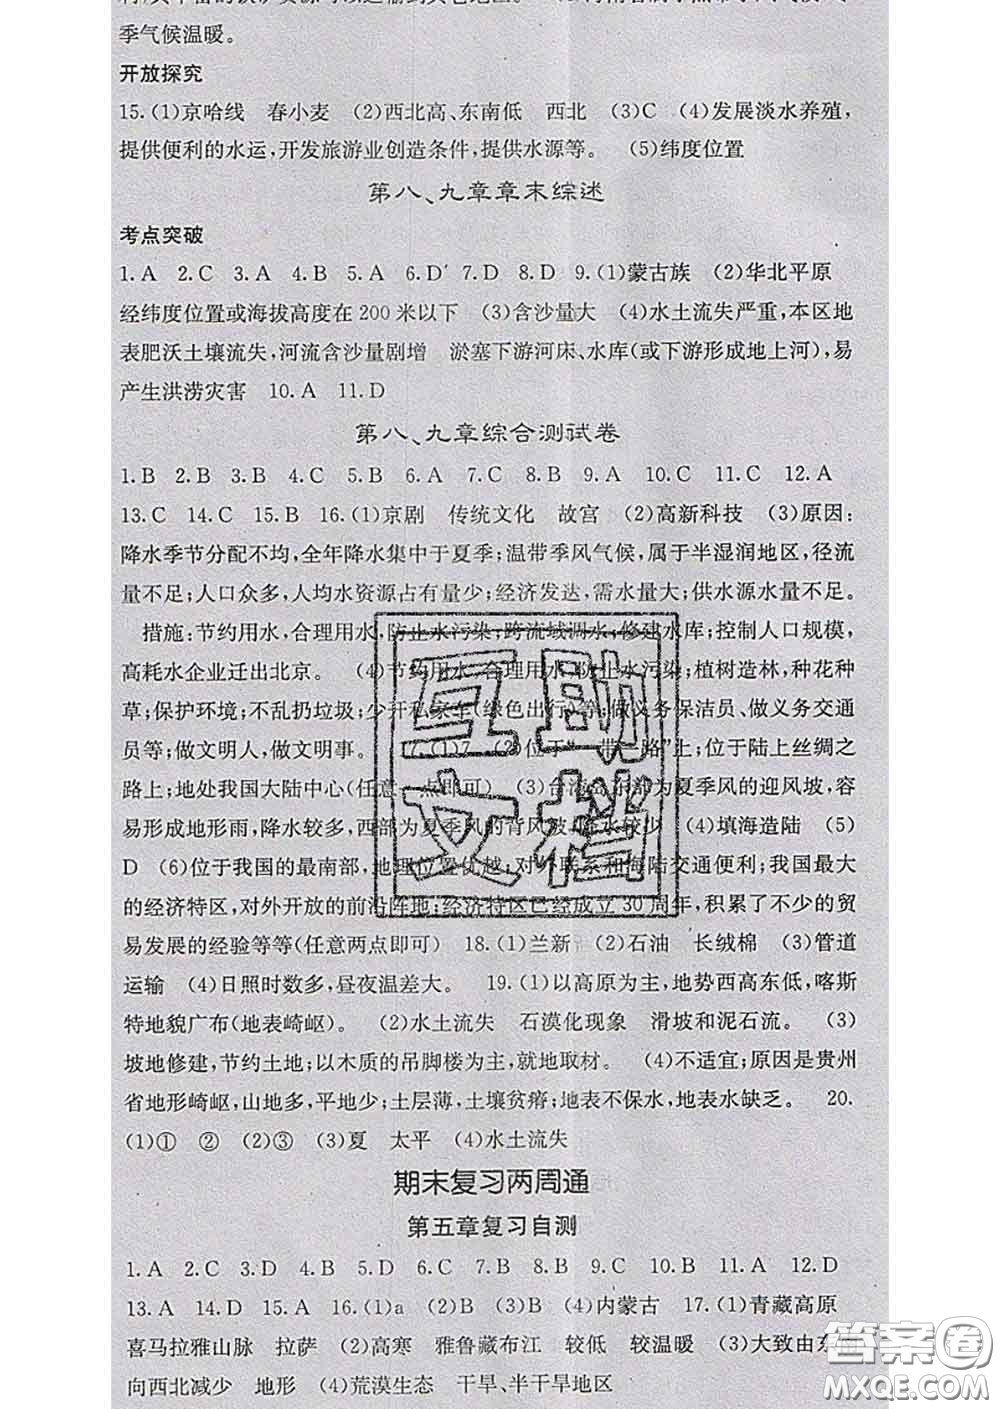 季气候温暖。
开放探究
15.(1)京哈线　春小麦　(2)西北高、东南低　西北　(3)C　(4)发展淡水养殖,
提供便利的水运,开发旅游业创造条件,提供水源等。　(5)纬度位置
第八、九章章末综述
考点突破
1.A　2.C　3.A　4.B　5.A　6.D　7.D　8.D　9.(1)蒙古族　(2)华北平原
经纬度位置或海拔高度在 200 米以下　(3)含沙量大　(4)水土流失严重,本区地
表肥沃土壤流失,河流含沙量剧增　淤塞下游河床、水库(或下游形成地上河),易
产生洪涝灾害　10.A　11.D
第八、九章综合测试卷
1.B　2.B　3.B　4.C　5.B　6.A　7.C　8.B　9.A　10.C　11.C　12.A
13.C　14.C　15.B　16.(1)京剧　传统文化　故宫　(2)高新科技　(3)原因:
降水季节分配不均,全年降水集中于夏季;温带季风气候,属于半湿润地区,径流
量不足;人口众多,人均水资源占有量少;经济发达,需水量大;供水源水量不足。
措施:节约用水,合理用水,防止水污染;跨流域调水;修建水库;控制人口规模,
高耗水企业迁出北京。　(4)节约用水,合理用水,防止水污染;植树造林,种花种
草;保护环境;不乱扔垃圾;少开私家车(绿色出行)等;做义务保洁员、做义务交通
员等;做文明人,做文明事。　17.(1)7　(2)位于“一带一路”上;位于陆上丝绸之
路上;地处我国大陆中心(任意一点即可)　(3)台湾岛东部为夏季风的迎风坡,容
易形成地形雨,降水较多,西部为夏季风的背风坡,降水较少　(4)填海造陆　(5)
D　(6)位于我国的最南部,地理位置优越,对外联系和海陆交通便利;我国最大
的经济特区,对外开放的前沿阵地;经济特区已经成立 30 周年,积累了不少的贸
易发展的经验等等(任意两点即可)　18.(1)兰新　(2)石油　长绒棉　(3)管道
运输　(4)日照时数多,昼夜温差大。　19.(1)以高原为主,地势西高东低,喀斯
特地貌广布(地表崎岖)。　(2)水土流失　石漠化现象　滑坡和泥石流。　(3)
坡地修建,节约土地;以木质的吊脚楼为主,就地取材。　(4)不适宜;原因是贵州
省地形崎岖,山地多,平地少;土层薄,土壤贫瘠;地表不保水,地表水缺乏。　20.
(1)①　②　(2)③　(3)夏　太平　(4)水土流失
期末复习两周通
第五章复习自测
1.A　2.C　3.D　4.B　5.D　6.C　7.D　8.B　9.C　10.B　11.A　12.D
13.A　14.D　15.A　16.(1)a　(2)B　(3)B　(4)内蒙古　17.(1)青藏高原
喜马拉雅山脉　拉萨　(2)高寒　雅鲁藏布江　较低　较温暖　(3)大致由东南
向西北减少　地形　(4)荒漠生态　干旱、半干旱地区
互助
文档
答案圈
MXQE.COM